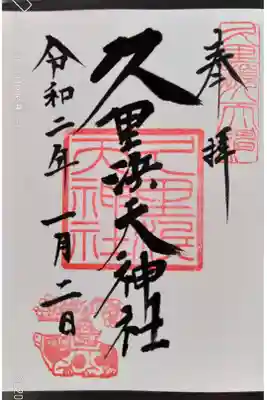 奉拝
久里浜天神社
令和二年一月二日
久里浜天神社